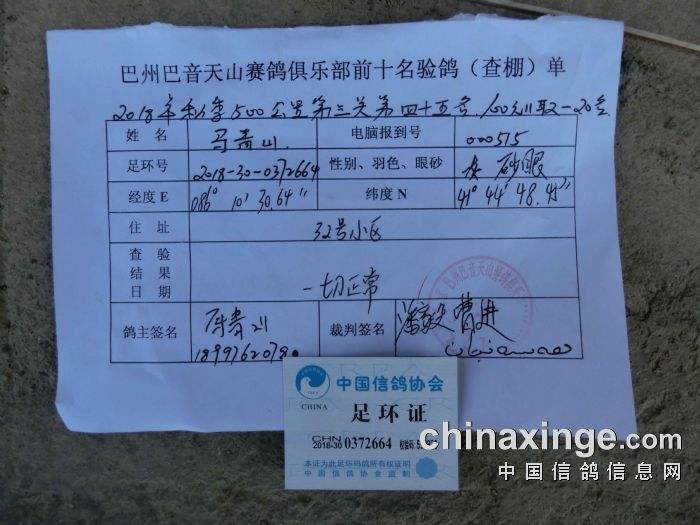 巴州巴音天山赛鸽俱乐部前十名验鸽（查棚）单
2018年秋季500公里第三关第四十五名,100元11取一20名
姓 名 马青山 电脑报到号 000515
足环号 2018-30-0372664 性别、羽色、眼砂 灰 砂眼
经度E 086° 10′ 30.64″ 纬度N 41° 44′ 48.45″
住 址 32号小区
查 验 结 果 日 期 一切正常
鸽主签名 裁判签名 曹进
中国信鸽协会
CHINA
足环证
CHN
2018-30 0372664
本证为此足环码鸽所有权证明
中国信鸽协会监制
chinaxinge.com
中国信鸽信息网